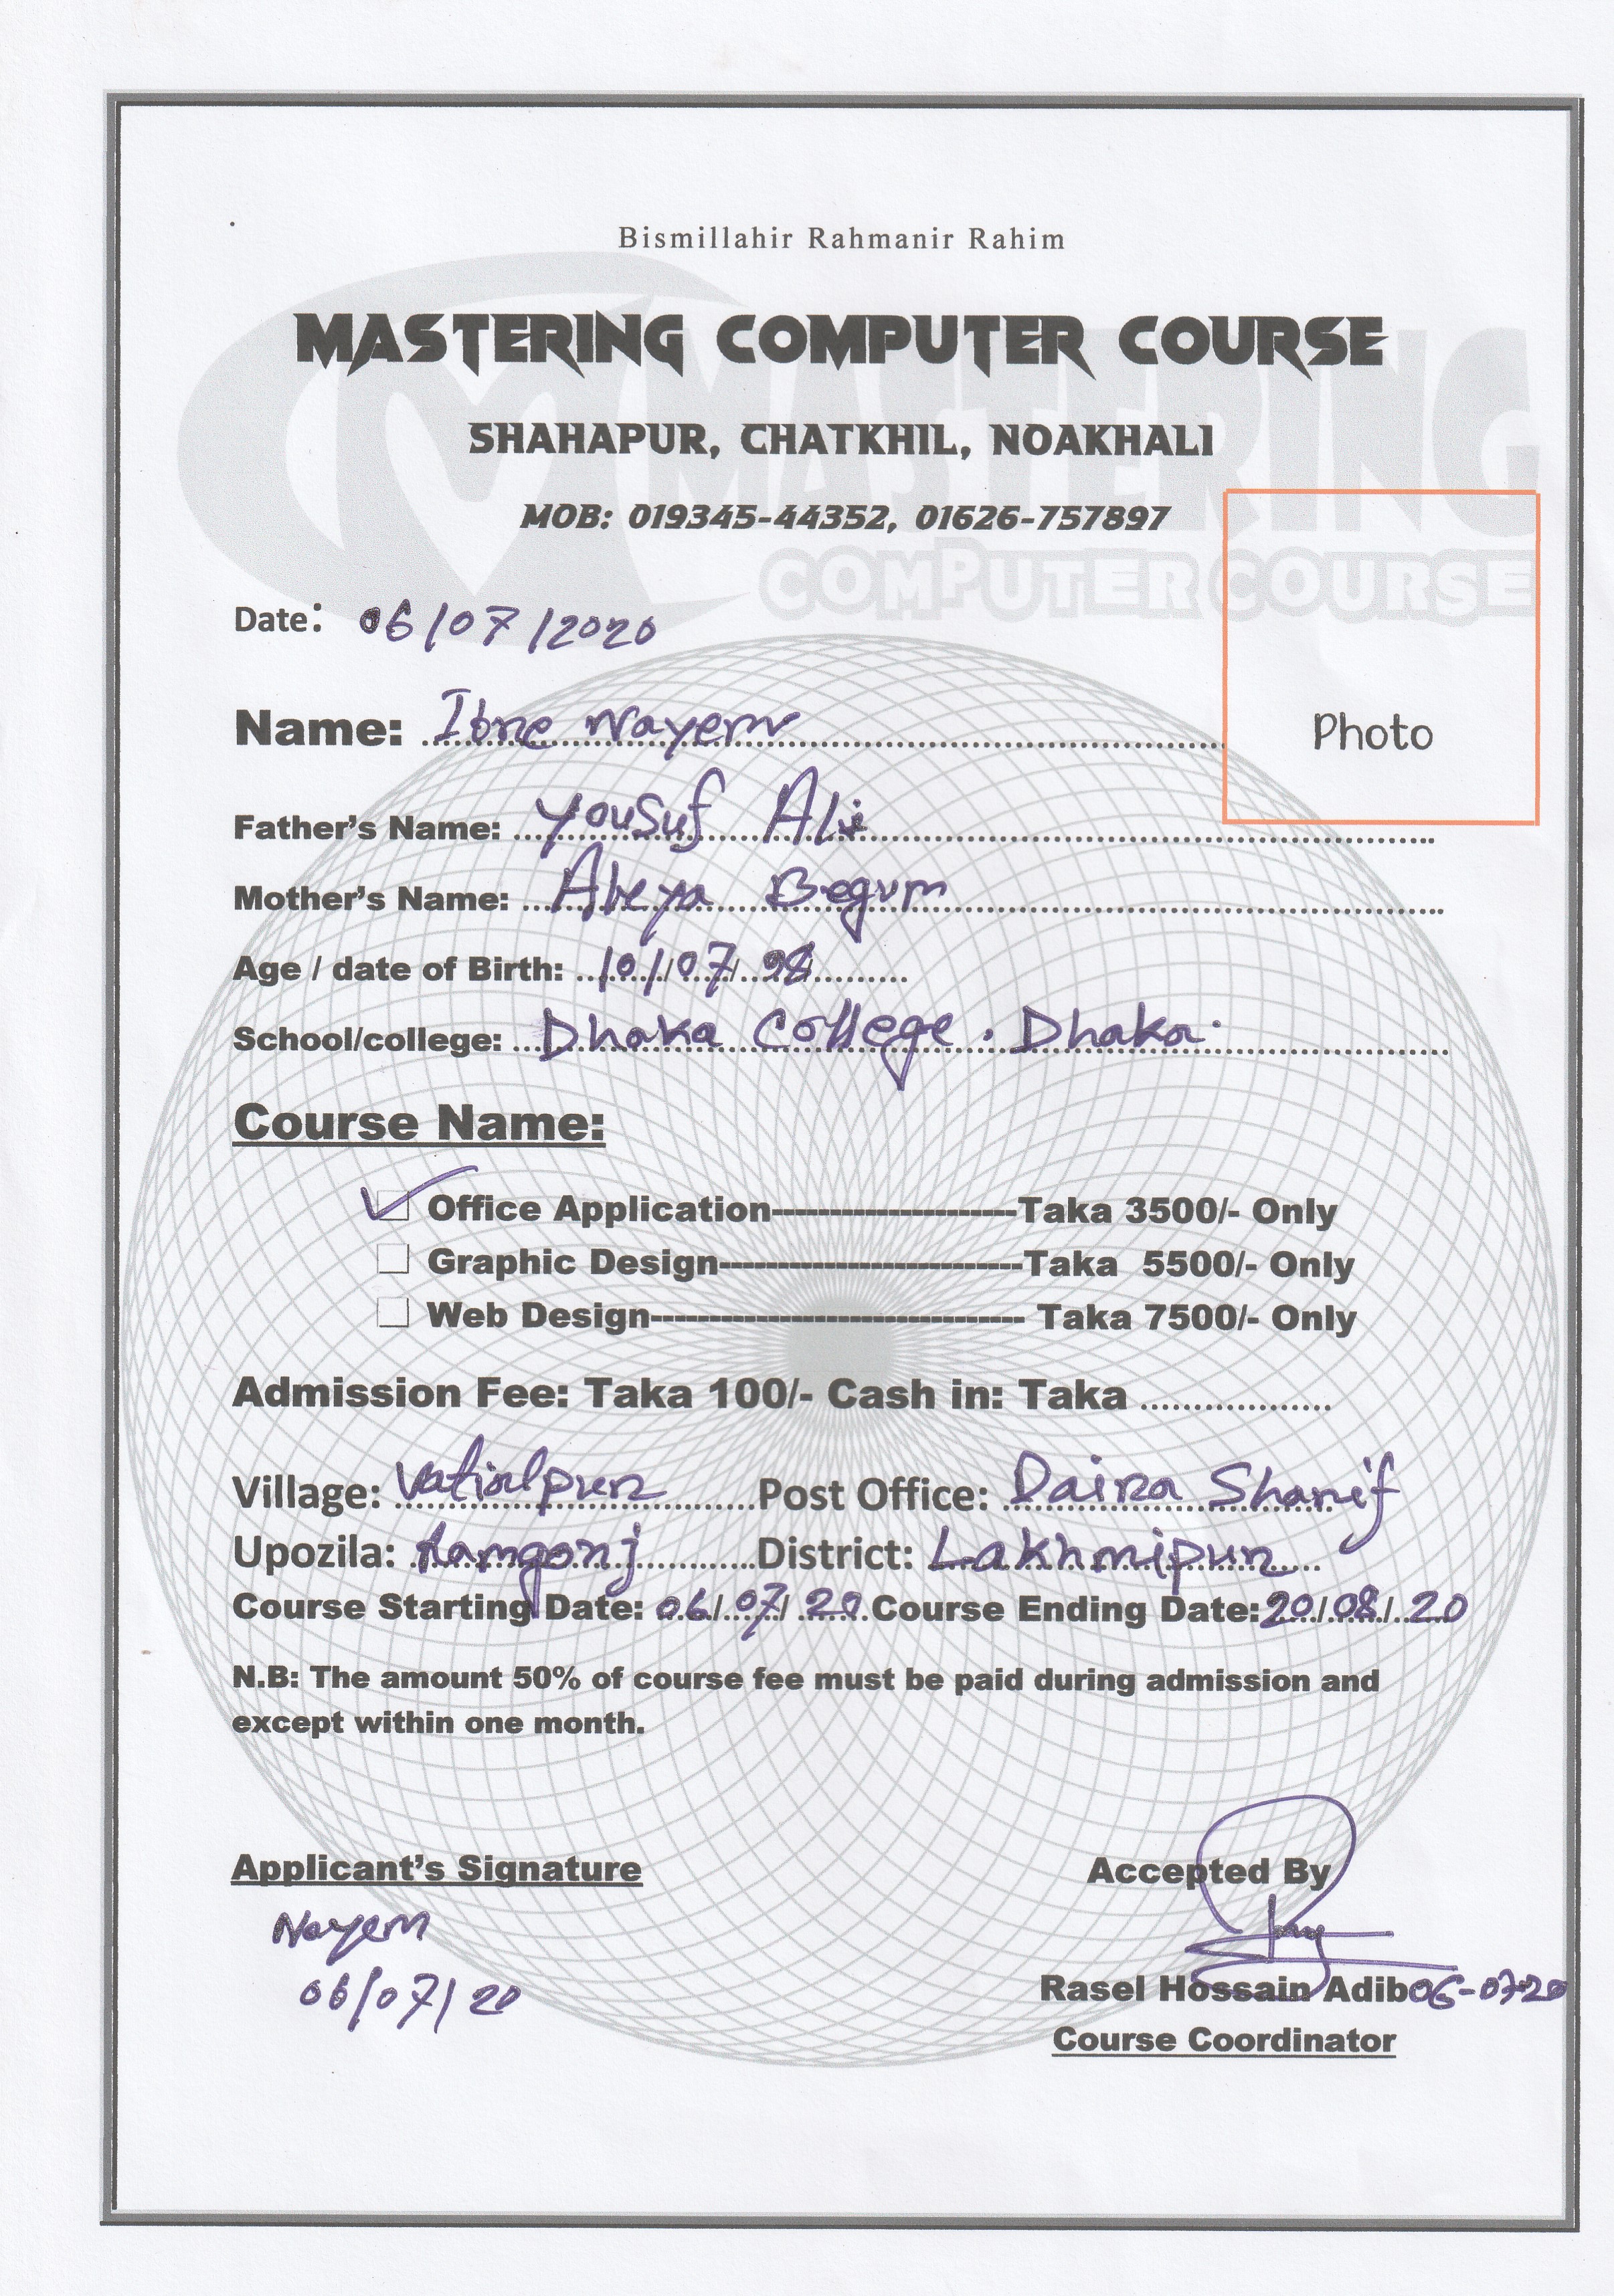 Bismillahir Rahmanir Rahim
MASTERING COMPUTER COURSE
SHAHAPUR, CHATKHIL, NOAKHALI
MOB: 019345-44352, 01626-757897
MASTERING
COMPUTER COURSE
Date: 06/07/2020
Photo
Name: Ibne Nayem
Father's Name: Yousuf Ali
Mother's Name: Aleya Begum
Age / date of Birth: 10/07/98
School/college: Dhaka College. Dhaka.
Course Name:
Office Application---------------------Taka 3500/- Only
Graphic Design--------------------------Taka 5500/- Only
Web Design-------------------------------- Taka 7500/- Only
Admission Fee: Taka 100/- Cash in: Taka ..................
Village: Vatialpur Post Office: Daira Sharif
Upozila: Ramgonj District: Lakhmipur
Course Starting Date: 06/07/20 Course Ending Date: 20/08/20
N.B: The amount 50% of course fee must be paid during admission and
except within one month.
Applicant's Signature Accepted By
Nayem
06/07/20
Rasel Hossain Adib 06-07-20
Course Coordinator